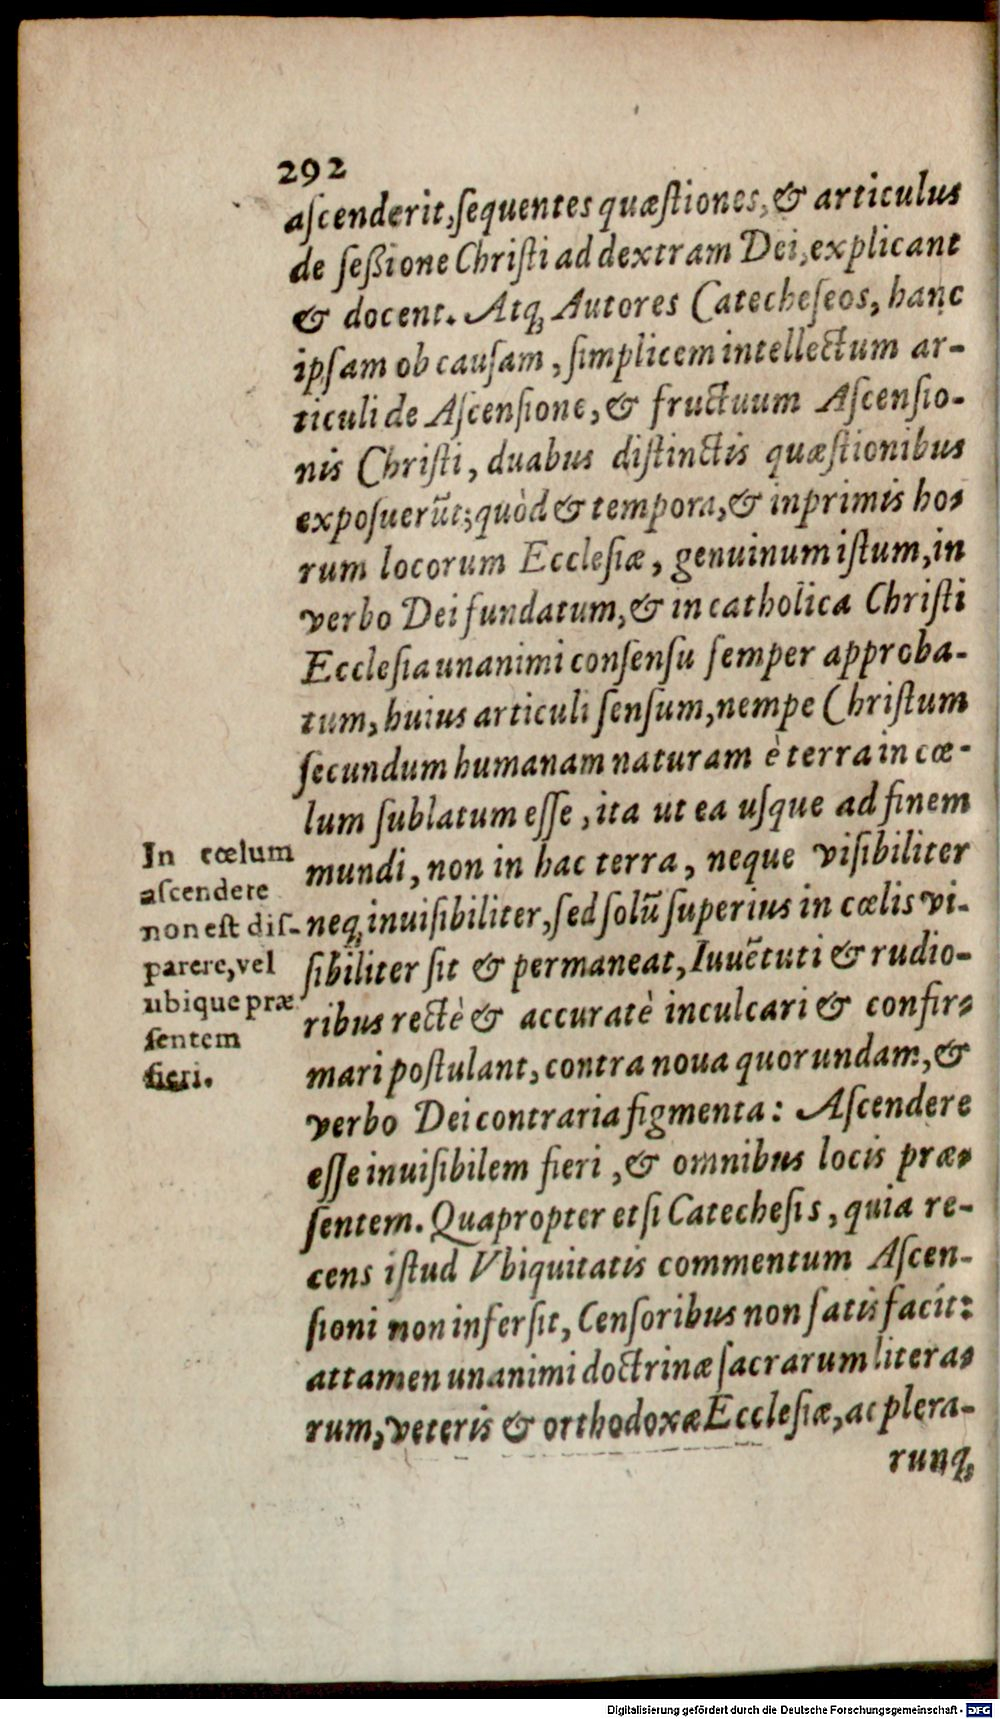 292
aſcenderit, ſequentes quæſtiones, & articulus
de ſeßione Chriſti ad dextram Dei, explicant
& docent. Atq; Autores Catecheſeos, hanc
ipſam ob cauſam, ſimplicem intellectum ar-
ticuli de Aſcenſione, & fructuum Aſcenſio-
nis Chriſti, duabus diſtinctis quæſtionibus
expoſuerũt; quòd & tempora, & inprimis ho-
rum locorum Eccleſiæ, genuinum iſtum, in
verbo Dei fundatum, & in catholica Chriſti
Eccleſia unanimi conſenſu ſemper approba-
tum, huius articuli ſenſum, nempe Chriſtum
ſecundum humanam naturam è terra in cœ-
lum ſublatum eſſe, ita ut ea uſque ad finem
mundi, non in hac terra, neque viſibiliter
neq; inuiſibiliter, ſed ſolũ ſuperius in cœlis vi-
ſibiliter ſit & permaneat, Iuuẽtuti & rudio-
ribus rectè & accuratè inculcari & confir-
mari poſtulant, contra noua quorundam, &
verbo Dei contraria figmenta: Aſcendere
eſſe inuiſibilem fieri, & omnibus locis præ-
ſentem. Quapropter etſi Catecheſis, quia re-
cens iſtud Vbiquitatis commentum Aſcen-
ſioni non inferſit, Cenſoribus non ſatis facit:
attamen unanimi doctrinæ ſacrarum litera-
rum, veteris & orthodoxæ Eccleſiæ, ac plera-
runq;
In cœlum
aſcendere
non eſt diſ-
parere, vel
ubique præ
ſentem
fieri.
Digitalisierung gefördert durch die Deutsche Forschungsgemeinschaft - DFG